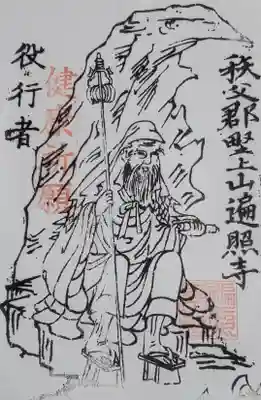 秩父郡野上山遍照寺
役行者
健康祈願